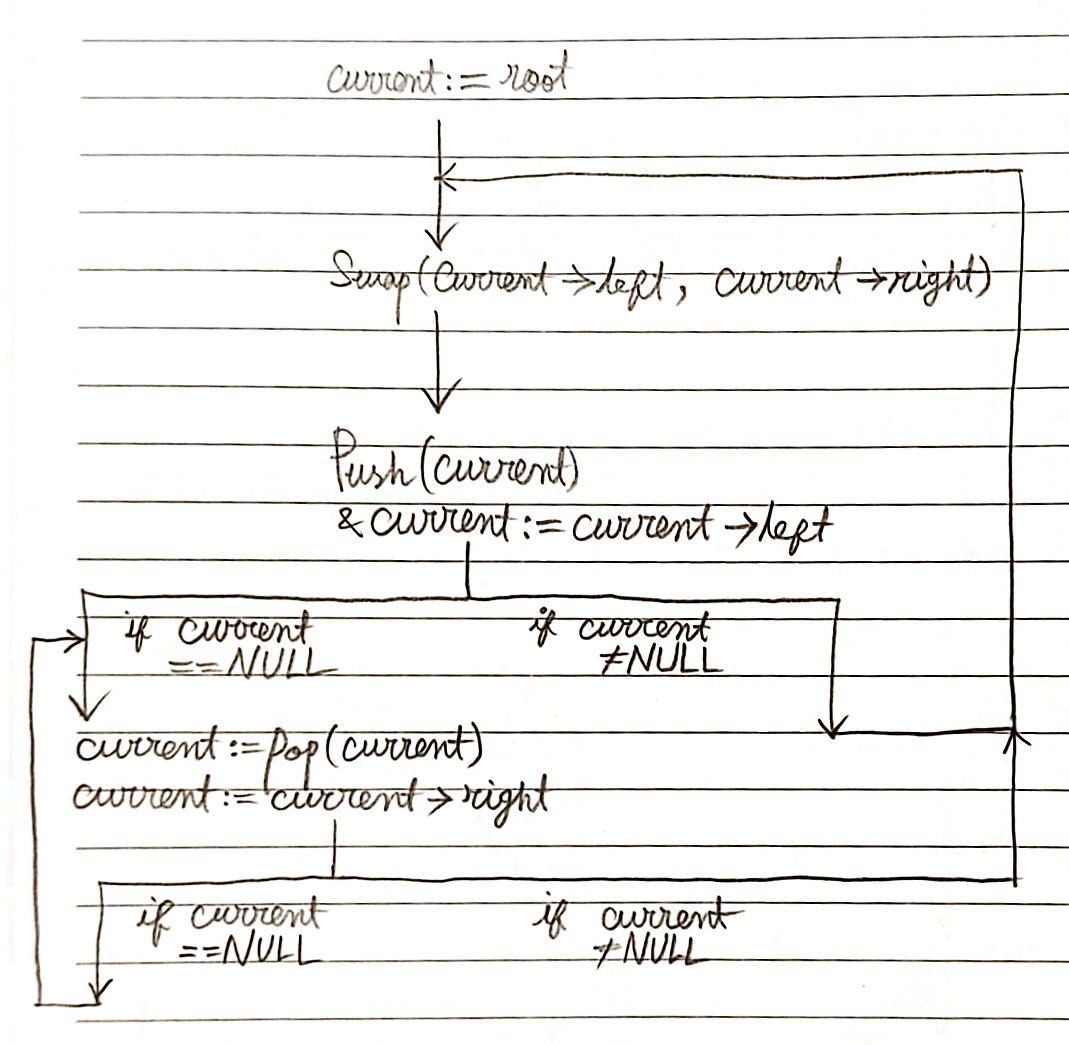 current := root
Swap(current→left, current→right)
Push(current)
& current := current→left
if current
==NULL
if current
≠NULL
current := Pop(current)
current := current→right
if current
==NULL
if current
≠NULL